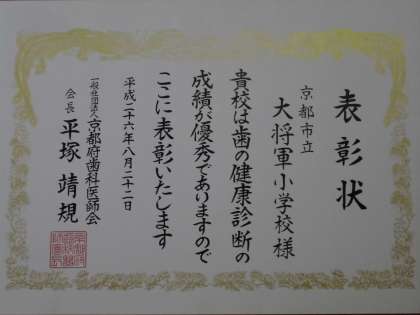 表彰状
京都市立
大将軍小学校様
貴校は歯の健康診断の
成績が優秀でありますので
ここに表彰いたします
平成二十六年八月二十二日
一般社団法人京都府歯科医師会
会長 平塚靖規